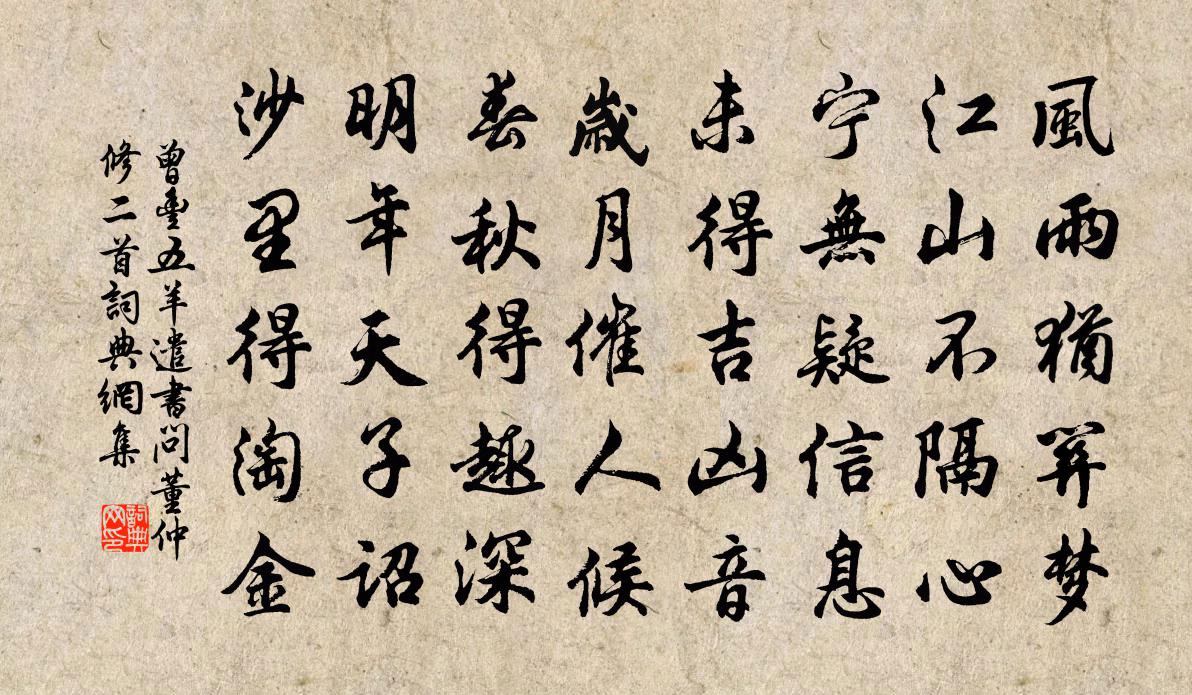 風雨猶幷梦
江山不隔心
宁無疑信息
未得吉凶音
歲月催人候
春秋得趣深
明年天子詔
沙里得淘金
曾豐五羊遣書問董仲
修二首詞典網集
詞典
网印